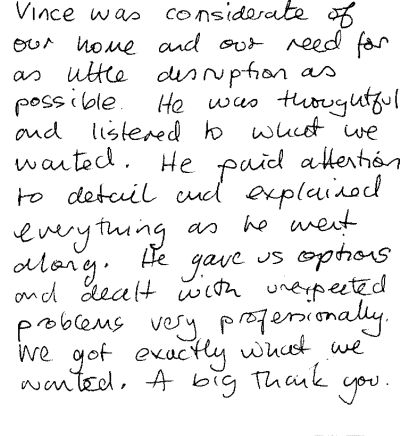 Vince was considerate of
our home and our need for
as little disruption as
possible. He was thoughtful
and listened to what we
wanted. He paid attention
to detail and explained
everything as he went
along. He gave us options
and dealt with unexpected
problems very professionally.
We got exactly what we
wanted. A big Thank you.